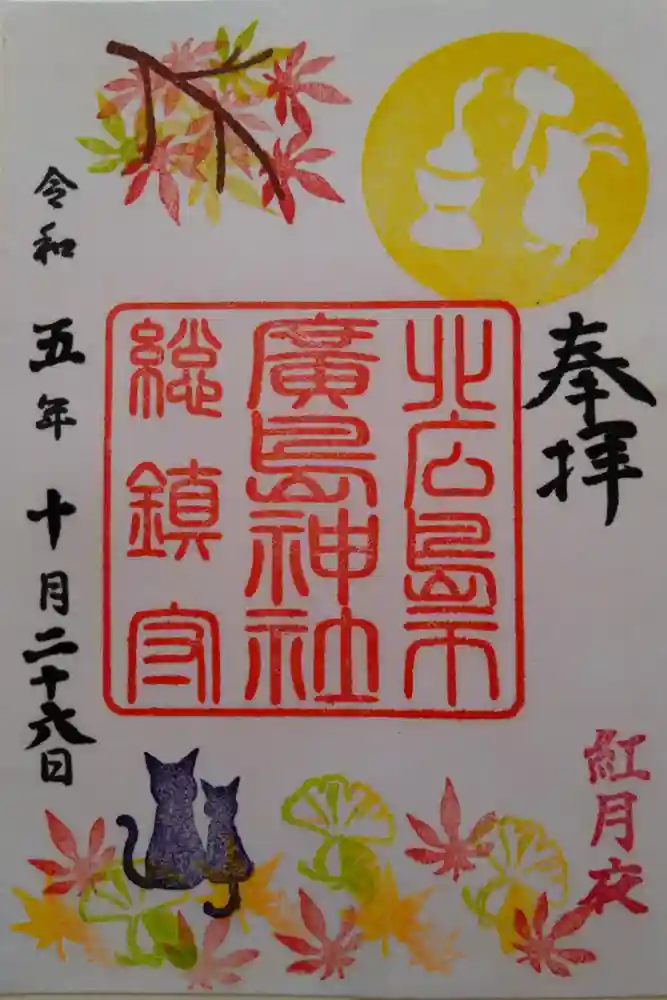 奉拝
北広島市
廣島神社
総鎮守
紅月夜
令和五年十月二十六日